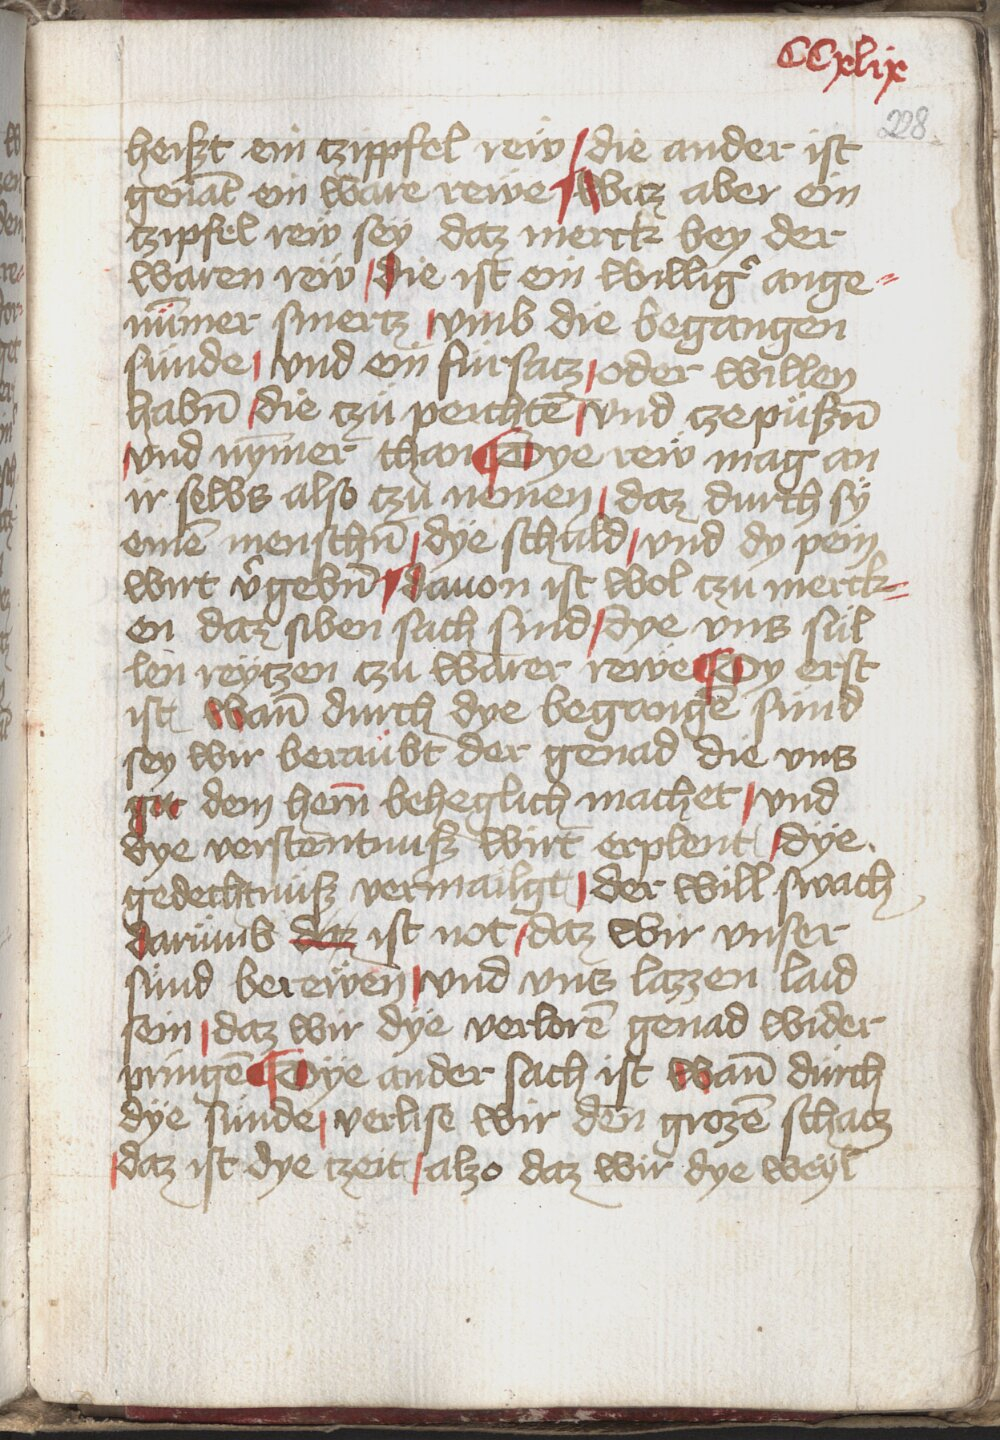 CCxlix
228
heiszt ein tzippfel reiv / die ander ist
genāt ein ware rewe / Waz aber ein
tzipfel rew seÿ daz merck bey der
waren rew / die ist ein willigˀ ange=
nūmer smertz / vmb die begangen
sünde / vnd ein fürsatz / oder willen
habn̄ / die tzü peichtē / vnd tzepüszn̄
/ vnd nȳmer than ¶ Dye rew mag an
ir selbs also tzu nemen / daz durch sÿ
einē menschn̄ / dÿe schuld / vnd dy pein
wirt v̉gebn̄ / dauon ist wol tzu merck=
en daz siben sach sind / dye vns sül
len reÿtzen tzu warer rewe ¶ Dy erst
ist Wan̄ durch dye begangē sünd
sey wir beraübt der genad die vns
got dem herrn̄ beheglich machet / vnd
dye verstentnusz wirt erplent / dÿe
gedechtnusz vermailgt / der will swach
darümb daz ist not / daz wir vnser
sünd berewen / vnd vns lazzen laid
sein / daz wir dÿe verlorē genad wider
pringē ¶ Dÿe ander sach ist Wan̄ durch
dÿe sünde / verlise wir den grozē schacz
/ daz ist dye tzeit / alzo daz wir dye weÿl